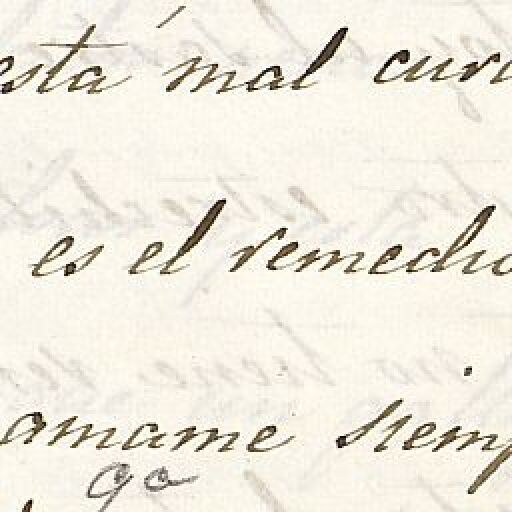 está mal cur
es el remedio
amame siemp